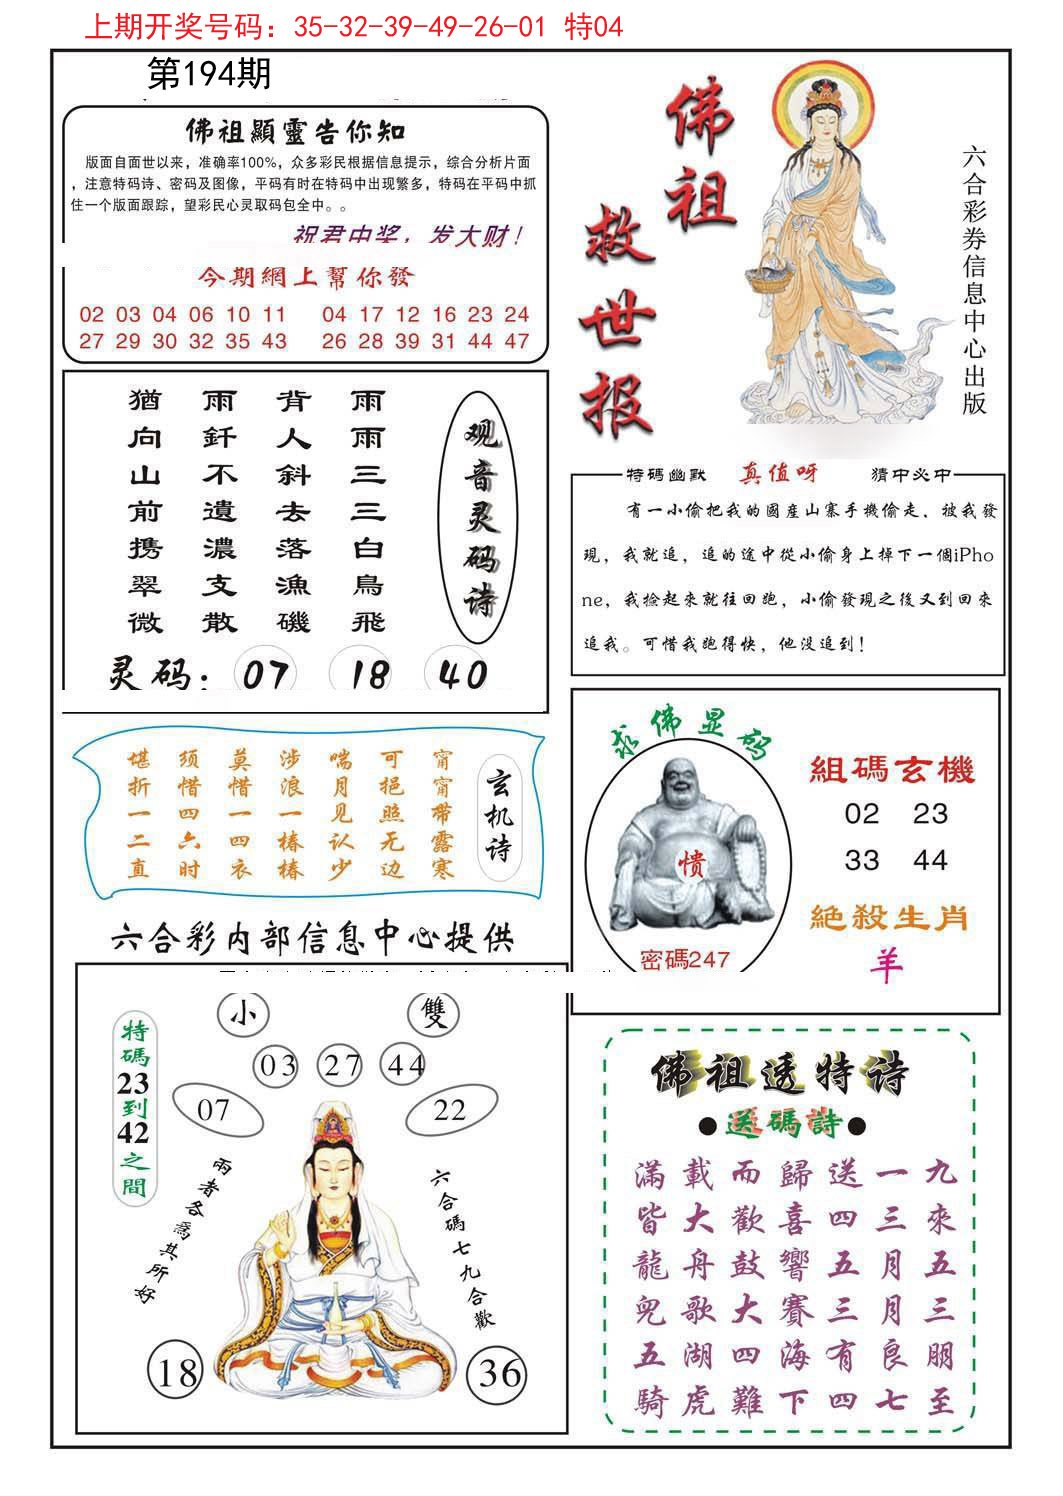 上期开奖号码：35-32-39-49-26-01 特04
第194期
佛祖顯靈告你知
版面自面世以来，准确率100%，众多彩民根据信息提示，综合分析片面
，注意特码诗、密码及图像，平码有时在特码中出现繁多，特码在平码中抓
住一个版面跟踪，望彩民心灵取码包全中。。
祝君中奖，发大财！
今期網上幫你發
02 03 04 06 10 11 04 17 12 16 23 24
27 29 30 32 35 43 26 28 39 31 44 47
佛祖
救世报
六合彩券信息中心出版
观音灵码诗
雨雨三三白鳥飛
背人斜去落漁磯
雨釬不遺濃支散
猶向山前携翠微
灵码：07 18 40
特碼幽默 真值呀 猜中必中
有一小偷把我的國産山寨手機偷走，被我發
現，我就追，追的途中從小偷身上掉下一個iPho
ne，我捡起來就往回跑，小偷發現之後又到回來
追我。可惜我跑得快，他没追到！
玄机诗
甯甯带露寒
可挹照无边
喘月见认少
涉浪一椿椿
莫惜一四衣
须惜四六时
堪折一二直
求佛显码
愦
密碼247
組碼玄機
02 23
33 44
絶殺生肖
羊
六合彩内部信息中心提供
小 雙
03 27 44
07 22
特碼23到42之間
兩者各爲其所好
六合碼七九合歡
18 36
佛祖透特诗
●送碼詩●
滿載而歸送一九
皆大歡喜四三來
龍舟鼓響五月五
兒歌大賽三月三
五湖四海有良朋
騎虎難下四七至